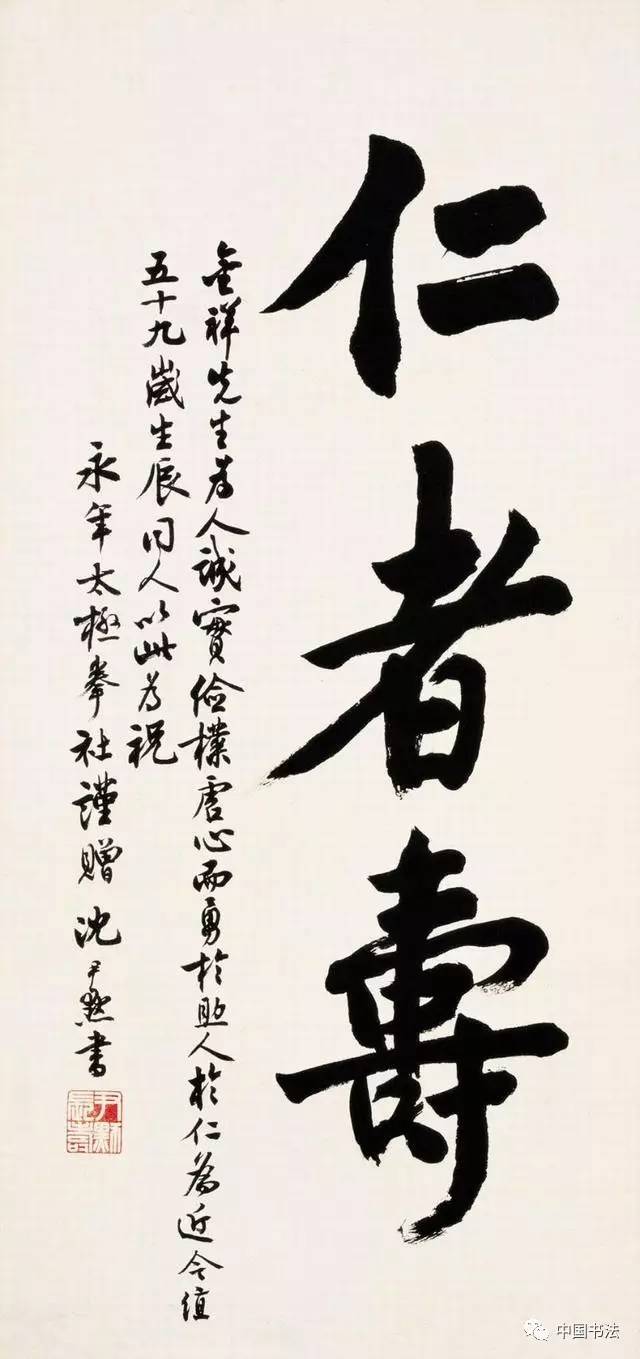 仁者壽
金祥先生為人誠實儉樸虛心而勇於助人於仁為近今值
五十九歲生辰同人以此為祝
永年太極拳社謹贈 沈尹默書
尹默長壽
中国书法